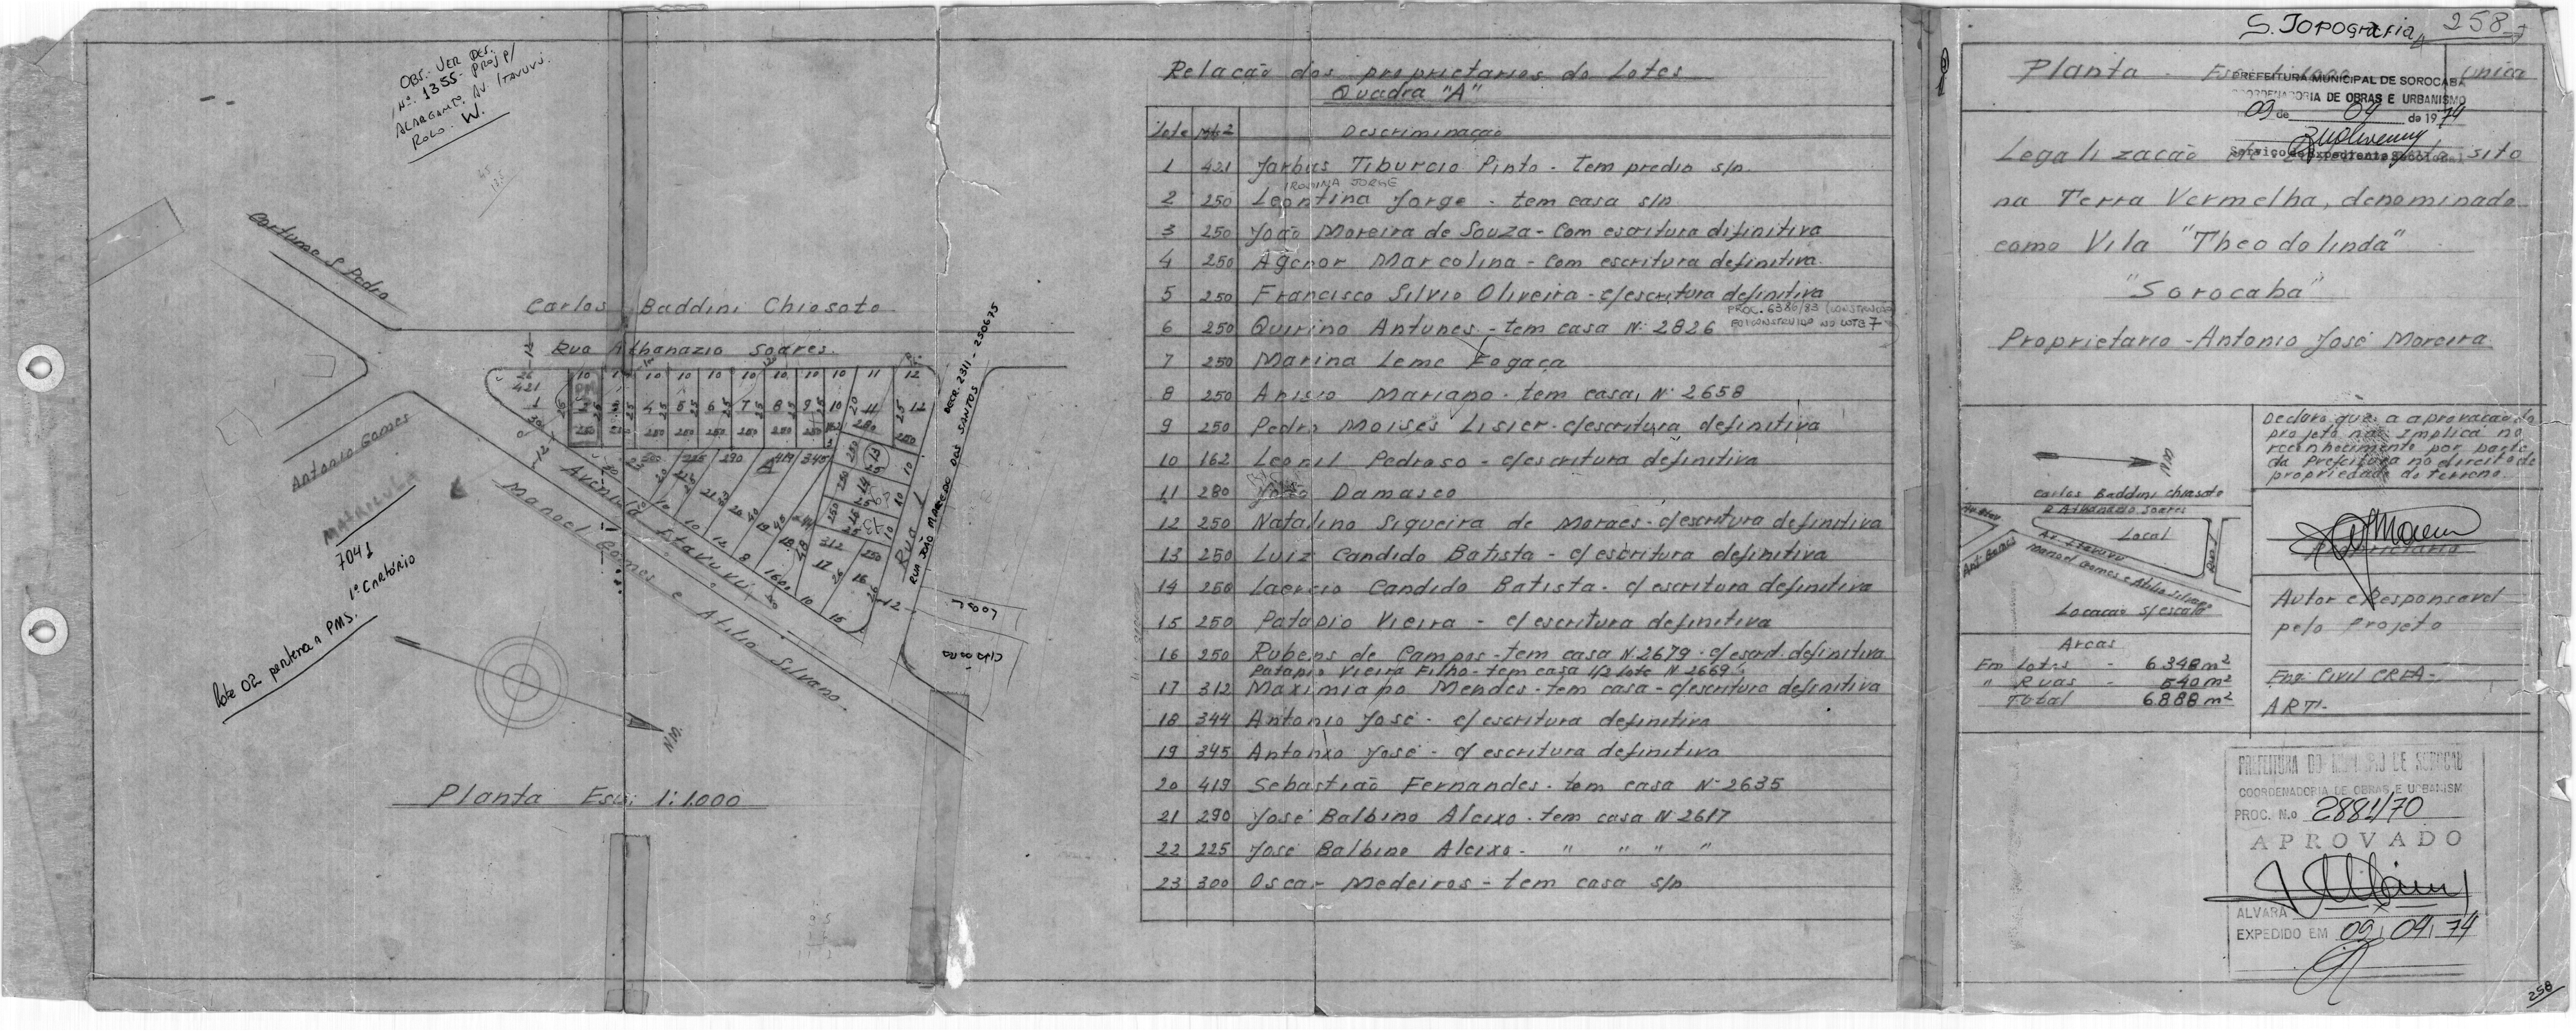 OBS.- VER DES.
Nº 1355- PROJ P/
ALARGAMTO AV. ITAVUVU.
ROLO. W.
Cortume S. Pedro
Carlos Baddini Chiosoto
Rua Athanazio Soares.
Antonio Gomes
MATRICULA
7041
1º Cartório
lote 02 pertence a PMS.
Avenida Itavuvú
Manoel Gomes e Atilio Silvano.
Rua 1
RUA JOÃO MACEDO DOS SANTOS DECR. 2311 - 250675
N.M.
Planta Esc: 1:1.000
Relação dos proprietarios do Lotes
Quadra "A"
Lote Mts2 Descriminação
1 421 Jarbas Tiburcio Pinto - tem predio s/n.
IRONINA JORGE
2 250 Leontina Jorge - tem casa s/n
3 250 João Moreira de Souza - Com escritura difinitiva
4 250 Agenor Marcolina - Com escritura definitiva.
5 250 Francisco Silvio Oliveira - c/escritura definitiva
PROC. 6386/83 (CONSTRUÇÃO
6 250 Quirino Antunes - tem casa N: 2826 FOI CONSTRUIDO NO LOTE 7
7 250 Marina Leme Fogaça
8 250 Anisio Mariano - tem casa, N: 2658
9 250 Pedro Moises Lisier - c/escritura definitiva
10 162 Leonil Pedroso - c/escritura definitiva
11 280 João Damasco
12 250 Natalino Siqueira de Moraes - c/escritura definitiva
13 250 Luiz Candido Batista - c/ escritura definitiva
14 250 Laercio Candido Batista - c/ escritura definitiva
15 250 Patapio Vieira - c/ escritura definitiva
16 250 Rubens de Campos - tem casa N. 2679 - c/escrit. definitiva
Patapio Vieira Filho - tem casa 1/2 lote N 2669
17 312 Maximiano Mendes - tem casa - c/escritura definitiva
18 344 Antonio José - c/ escritura definitiva
19 345 Antonio José - c/ escritura definitiva
20 419 Sebastião Fernandes - tem casa N: 2635
21 290 José Balbino Aleixo - tem casa N 2617
22 225 José Balbino Aleixo - " " " "
23 300 Oscar Medeiros - tem casa s/n
S. TOPOGRAFIA 258
Planta - única
PREFEITURA MUNICIPAL DE SOROCABA
COORDENADORIA DE OBRAS E URBANISMO
09 de 04 de 1974
Serviço de Expediente
Legalização sito
na Terra Vermelha, denominado
como Vila "Theodolinda"
"Sorocaba"
Proprietario - Antonio José Moreira.
Declaro que a aprovação do
projeto não implica no
reconhecimento por parte
da Prefeitura no direito de
propriedade do terreno.
N.M.
Carlos Baddini Chiosoto
R Athanazio Soares
Local
Av. Itavuvu
Manoel Gomes e Atilio Silvano
Ant. Gomes
Rua 1
Locação s/escala
Proprietario
Autor e Responsavel
pelo Projeto
Areas
Em Lotes - 6.348 m²
" Ruas - 540 m²
Total 6.888 m²
Eng: Civil CREA -
ART:-
PREFEITURA DO MUNICIPIO DE SOROCAB
COORDENADORIA DE OBRAS E URBANISM
PROC. N.o 2881/70
APROVADO
ALVARÁ
EXPEDIDO EM 09, 04, 74
258